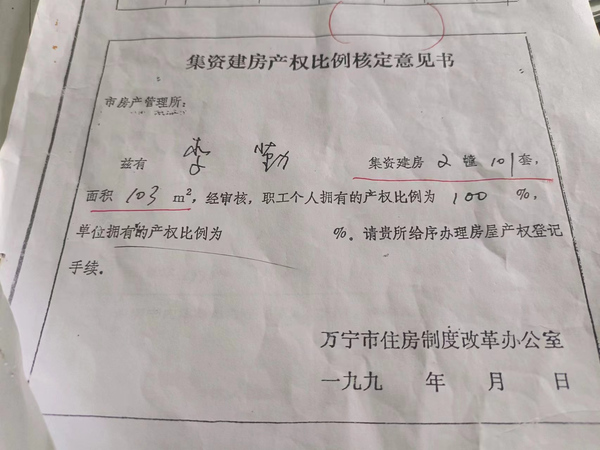 集资建房产权比例核定意见书
市房产管理所:
兹有 李 勤 集资建房 2 幢 101 套,
面积 103 m²,经审核,职工个人拥有的产权比例为 100 %,
单位拥有的产权比例为 %。请贵所给序办理房屋产权登记
手续。
万宁市住房制度改革办公室
一九九 年 月 日